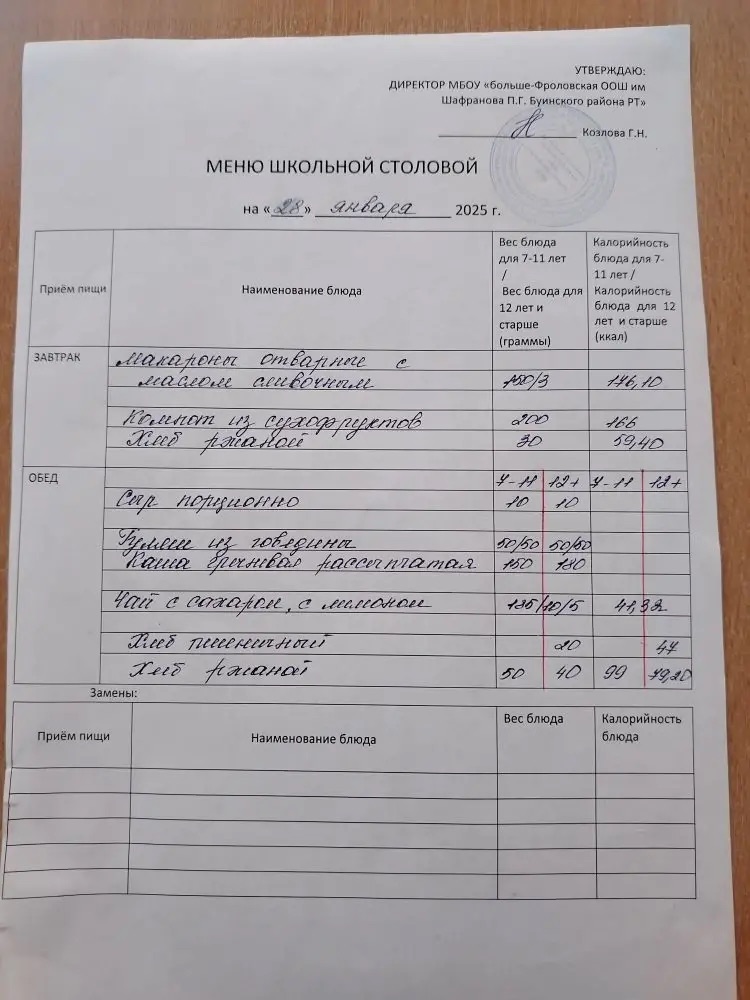 УТВЕРЖДАЮ:
ДИРЕКТОР МБОУ «больше-Фроловская ООШ им
Шафранова П.Г. Буинского района РТ»
Козлова Г.Н.
МЕНЮ ШКОЛЬНОЙ СТОЛОВОЙ
на «28» января 2025 г.
Приём пищи
Наименование блюда
Вес блюда
для 7-11 лет
/
Вес блюда для
12 лет и
старше
(граммы)
Калорийность
блюда для 7-
11 лет /
Калорийность
блюда для 12
лет и старше
(ккал)
ЗАВТРАК
Макароны отварные с
маслом сливочным 150/3 176,10
Компот из сухофруктов 200 166
Хлеб ржаной 30 59,40
ОБЕД 7-11 12+ 7-11 12+
Сыр порционно 10 10
Гуляш из говядины 50/50 50/50
Каша гречневая рассыпчатая 150 180
Чай с сахаром, с лимоном 185/10/5 41,32
Хлеб пшеничный 20 47
Хлеб ржаной 50 40 99 79,20
Замены:
Приём пищи
Наименование блюда
Вес блюда
Калорийность
блюда